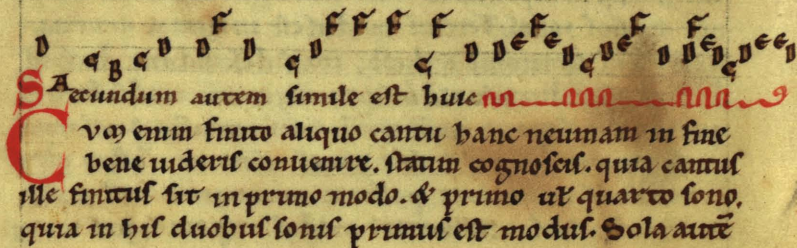 D A C B C D D F D C D F F F C F D D E F E D C D E F D D F E D C D E E D
Secundum autem simile est huic
Cum enim finito aliquo cantu hanc neumam in fine
bene uideris conuenire. statim cognoscis. quia cantus
ille finitus sit in primo modo. & primo uƚ quarto sono.
quia in his duobus sonis primus est modus. Sola autē